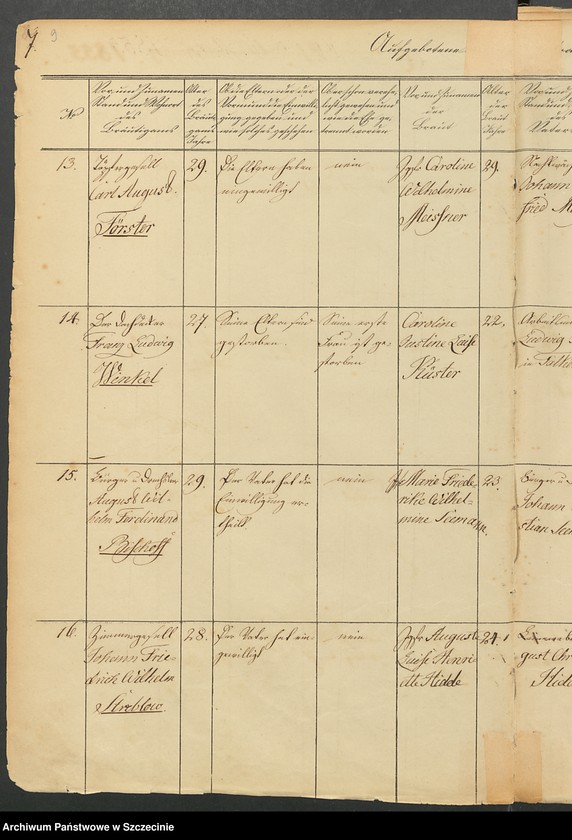 7.
9
Aufgebotene
No
Vor und Zunamen
Stand und Wohnort
des
Bräutigams
Alter
des
Bräuti
gams
Jahre
Ob die Eltern oder der
Vormund die Einwilli
gung gegeben und
wie solches geschehen
Vor und Zunamen
der
Braut
Alter
der
Braut
Jahre
Vor und Z
des
Vaters
13.
Töpfergesell
Carl August
Förster
29.
Die Eltern haben
eingewilligt
nein
Jgfr Caroline
Wilhelmine
Meissner
29.
Johann
Fried. M
14.
Franz Ludwig
Winkel
27.
Seine Eltern sind
gestorben.
Seine erste
Frau ist ge-
storben
Caroline
Justine Luise
Küster
22.
Ludwig
15.
August Wil-
helm Ferdinand
Bischoff
29.
Der Vater hat die
Einwilligung er-
theilt.
nein
Jgfr Marie Friede
rike Wilhel-
mine Seemann.
23.
Bürger u
Johann
stian See
16.
Zimmergesell
Johann Frie-
drich Wilhelm
Streblow
28.
Der Vater hat ein-
gewilligt
nein
Jgfr Auguste
Luise Henri-
ette Hidde
24.
gust Chr
Hid
Archiwum Państwowe w Szczecinie